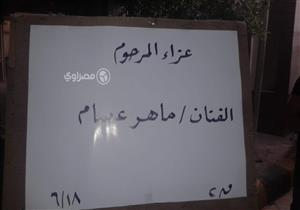 عزاء المرحوم
مصراوي
الفنان / ماهر عصام
٦/١٨